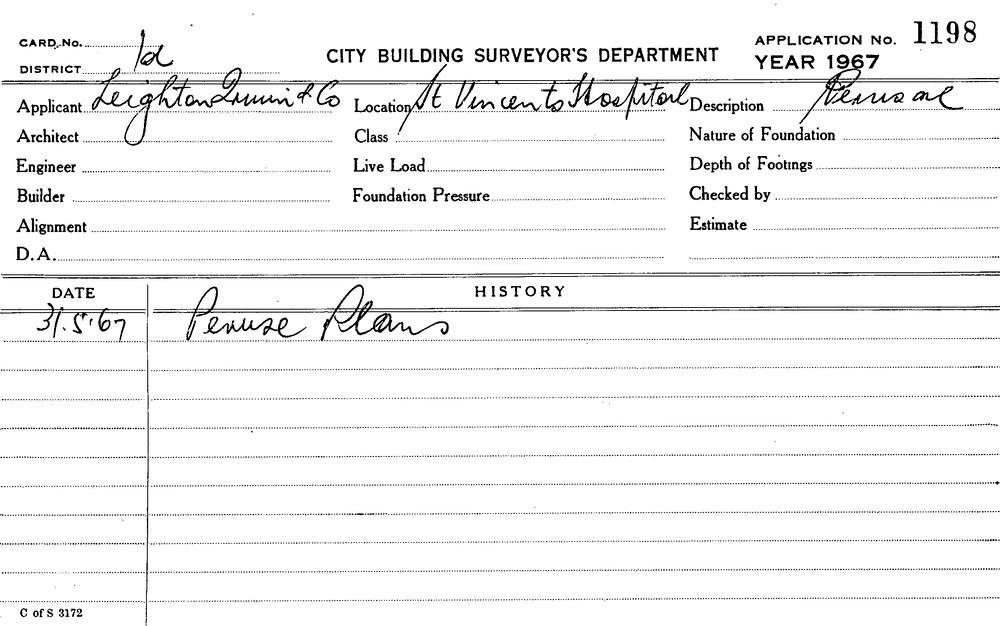 CARD No. 1d
CITY BUILDING SURVEYOR'S DEPARTMENT
APPLICATION No. 1198
DISTRICT
YEAR 1967
Applicant Leighton Irwin & Co Location St Vincents Hospital Description Perusal
Architect Class Nature of Foundation
Engineer Live Load Depth of Footings
Builder Foundation Pressure Checked by
Alignment Estimate
D.A.
DATE HISTORY
31.5.67 Peruse Plans
C of S 3172